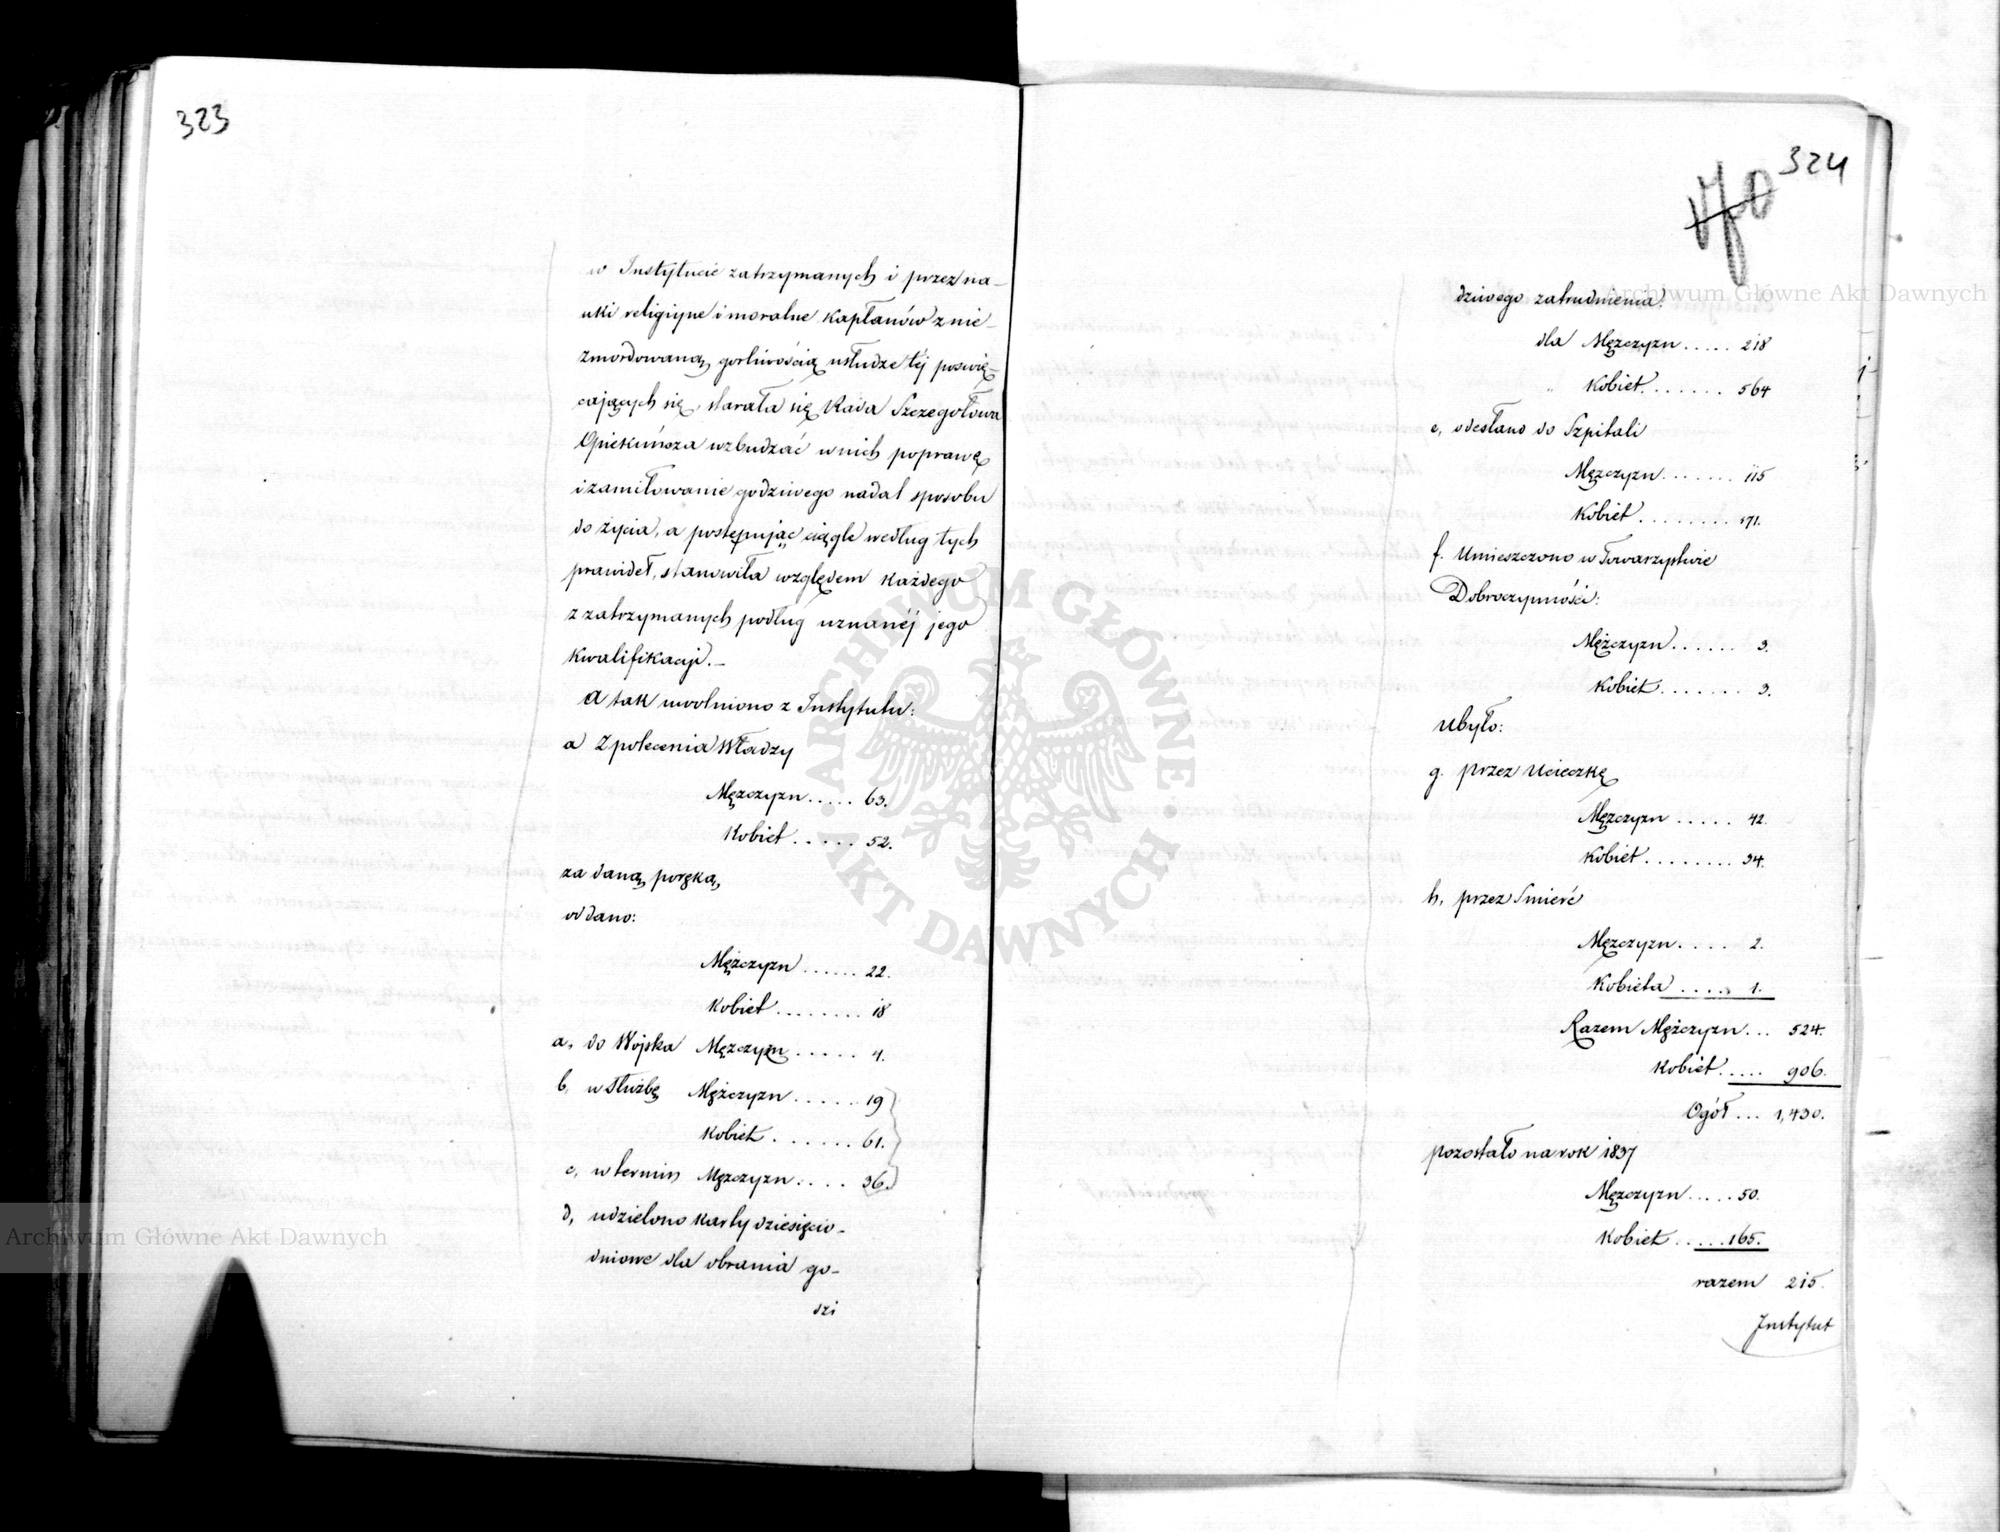 323
w Instytucie zatrzymanych i przez na-
uki religijne i moralne Kapłanów z nie-
zmordowaną gorliwością usłudze téj poswię-
cających się, starała się Rada Szczegołowa
Opiekuńcza wzbudzać w nich poprawę
i zamiłowanie godziwego nadal sposobu
do życia, a postępując ciągle według tych
prawideł, stanowiła względem każdego
z zatrzymanych podług uznanéj jego
Kwalifikacji.—
A tak uwolniono z Instytutu:
a Z polecenia Władzy
Mężczyzn ..... 63.
Kobiet ..... 52.
za daną poręką,
oddano:
Mężczyzn ...... 22.
Kobiet ........ 18
a, do Wojska Mężczyzn ..... 4.
b, w służbę Mężczyzn ...... 19
Kobiet ....... 61.
c, w termin Mężczyzn .... 36.
d, udzielono karty dziesięcio-
dniowe dla obrania go-
dzi
324
170
dziwego zatrudnienia:
dla Mężczyzn ..... 218
" Kobiet ....... 564
e, odesłano do Szpitali
Mężczyzn ....... 115
Kobiet ........ 171.
f. Umieszczono w Towarzystwie
Dobroczynności:
Mężczyzn ...... 3.
Kobiet ....... 3.
Ubyło:
g. przez Ucieczkę
Mężczyzn ..... 42.
Kobiet ........ 34.
h, przez Smierć
Mężczyzn ..... 2.
Kobieta ..... 1.
Razem Mężczyzn ... 524.
Kobiet ..... 906.
Ogół ... 1,430.
pozostało na rok 1837
Mężczyzn ..... 50.
Kobiet ..... 165.
razem 215.
Instytut
Archiwum Główne Akt Dawnych
Archiwum Główne Akt Dawnych
ARCHIWUM GŁÓWNE · AKT DAWNYCH ·